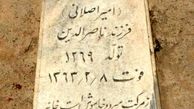 (امیر اصلانی)
فرزند ناصرالدین
تولد ۱۲۶۹
فوت ۱۳۶۳/۲/۸